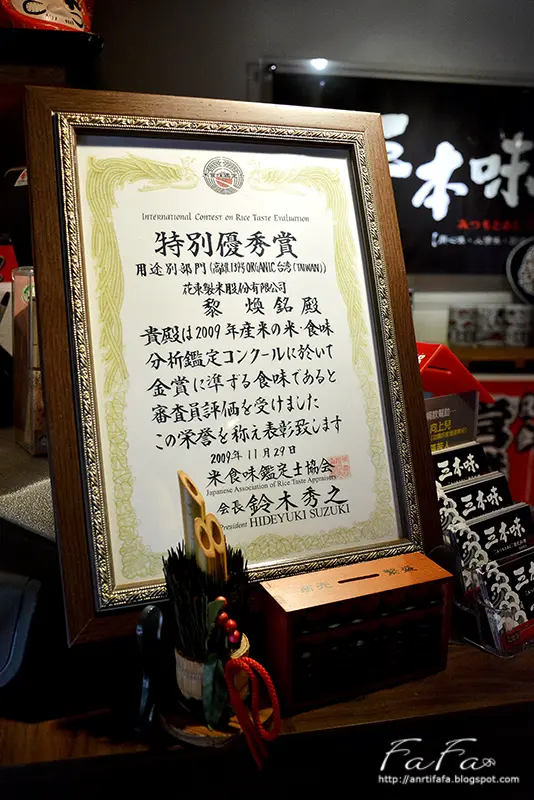 International Contest on Rice Taste Evaluation
特別優秀賞
花東製米股份有限公司
黎 煥銘 殿
貴殿は2009年産米の米・食味
分析鑑定コンクールに於いて
金賞に準ずる食味であると
審査員評価を受けました
この栄誉を称え表彰致します
2009年11月29日
米食味鑑定士協会
Japanese Association of Rice Taste Appraisers
会長 鈴木秀之
President HIDEYUKI SUZUKI
本味
みつもとあじ
三本味
三本味
三本味
FaFa
http://anrtifafa.blogspot.com